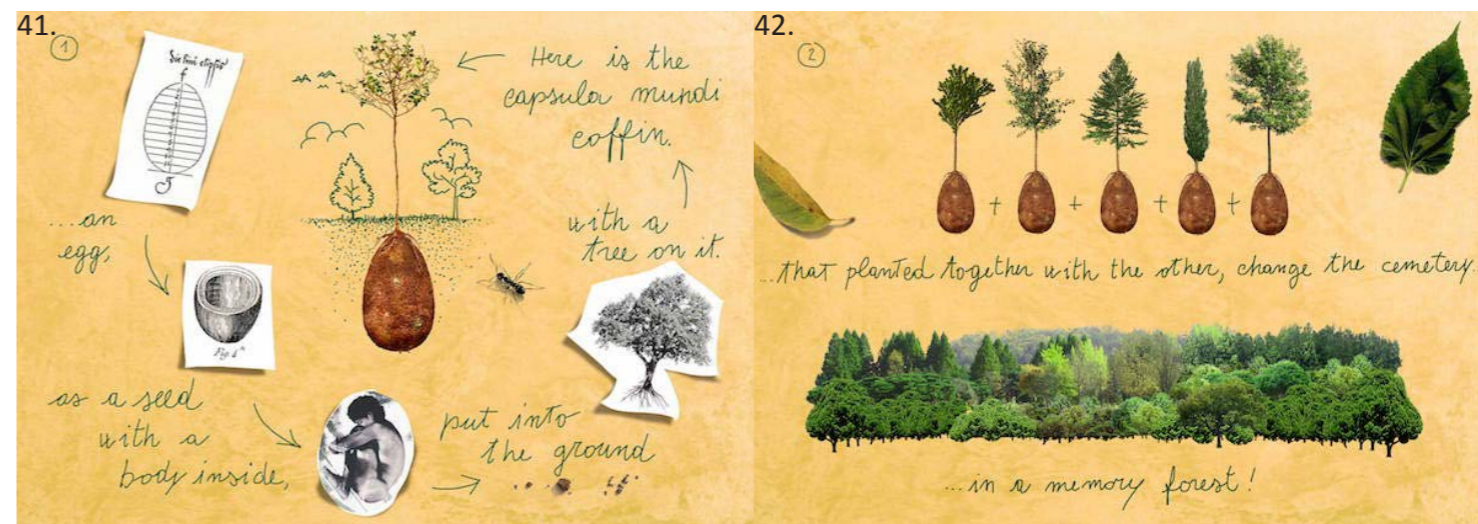 41.
1
Here is the
capsula mundi
coffin.
...an
egg,
with a
tree on it.
Fig. 4
as a seed
with a
body inside,
put into
the ground
42.
2
+ + + +
...that planted together with the other, change the cemetery
...in a memory forest!